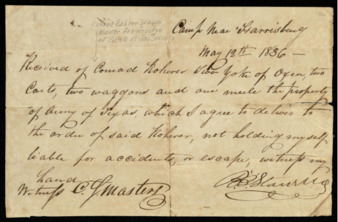 Camp Near Harrisburg
May 12th 1836
Received of Conrad Rohrer Two Yoke of Oxen, two
Carts, two waggons and one mule the property
of Army of Texas, which I agree to deliver to
the order of said Rohrer, not holding myself
liable for accidents, or escape, witness my
hand
Witness C J Masters